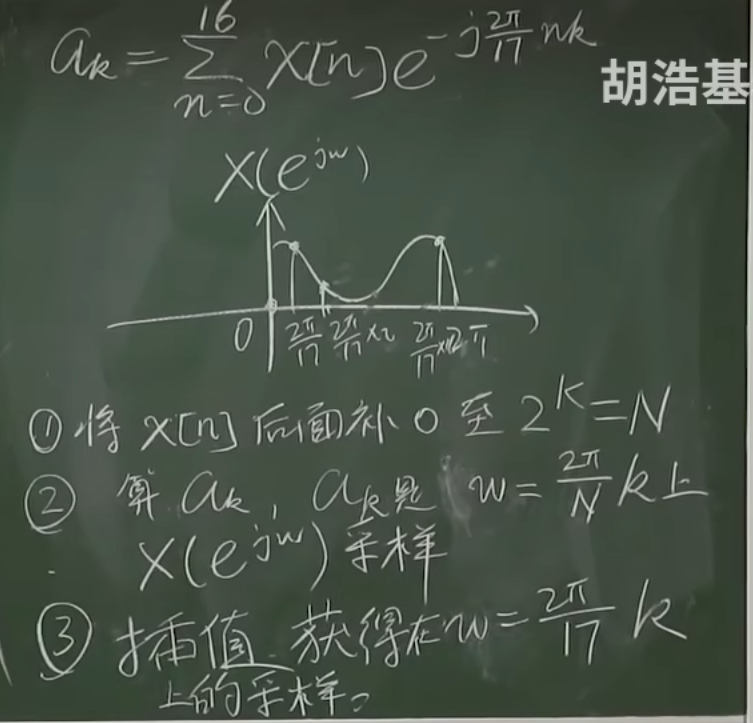 a_k = \sum_{n=0}^{16} x[n] e^{-j\frac{2π}{17}nk}
胡浩基
X(e^{jw})
0 2π/17 2π/17 ×2 2π/17 π
① 将 x[n] 后面补 0 至 2^k = N
② 算 a_k, a_k是 w = 2π/N k 上
X(e^{jw}) 采样
③ 插值 获得在 w = 2π/17 k
上的采样。